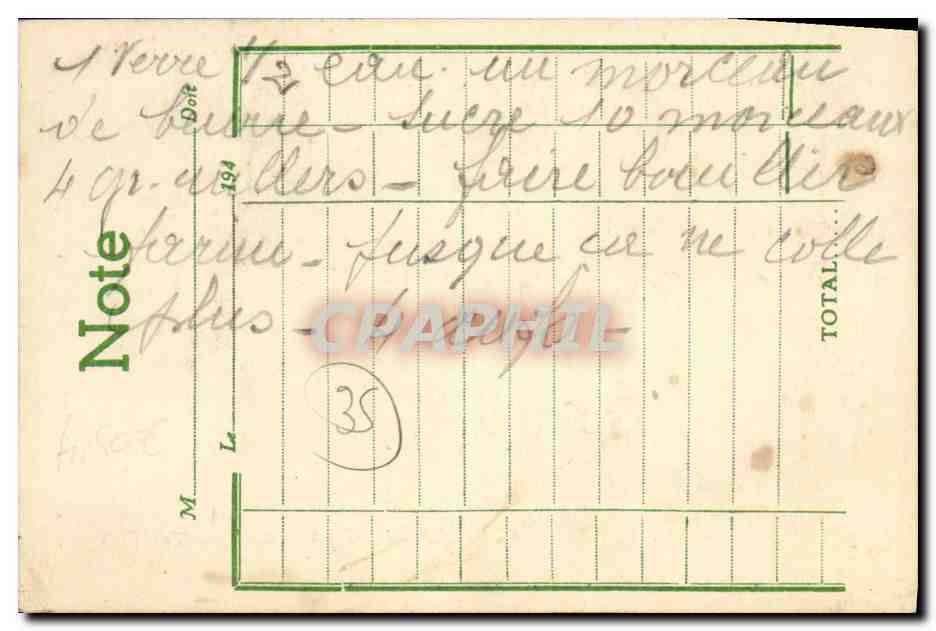 1 Verre 1/2 eau. un morceau
de beurre - sucre 10 morceaux
4 gr. - faire bouillir
farine - jusque ça ne colle
plus - 4 oeufs -
35
Note
M
Doit
Le 194
TOTAL
CPAPHIL